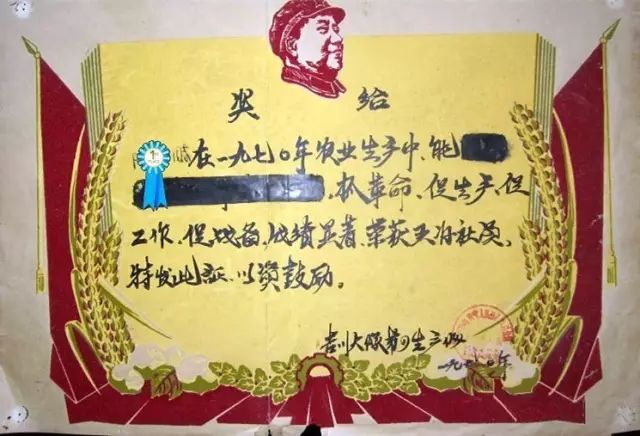 奖给
在一九七〇年农业生产中,能
,抓革命,促生产,促
工作,促战备,成绩显著,荣获五好社员,
特发此证,以资鼓励。
大队第 生产队
一九七〇年